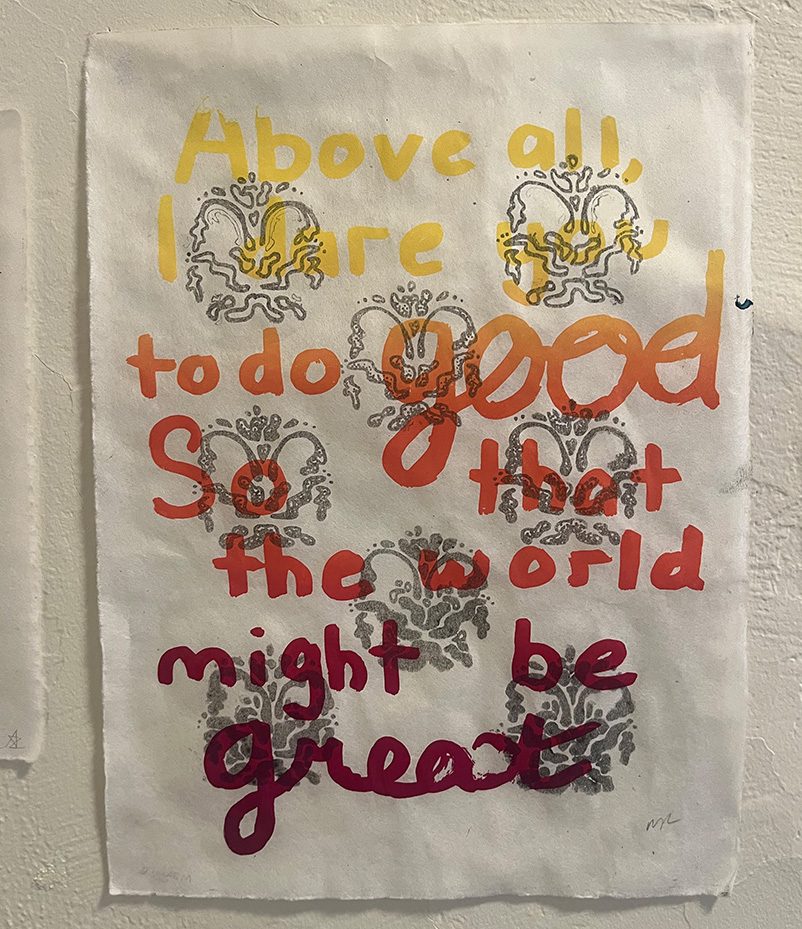 Above all,
I dare you
to do good
So that
the world
might be
great